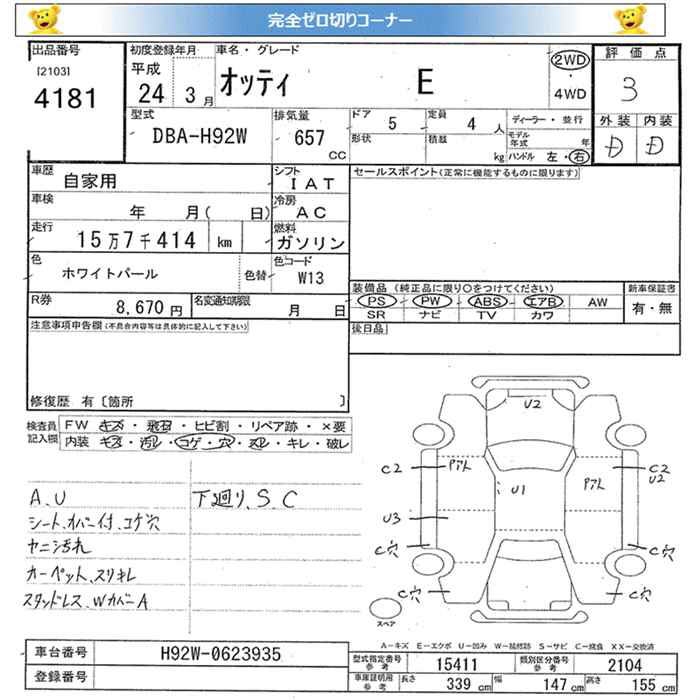 完全ゼロ切りコーナー
出品番号
[2103]
4181
初度登録年月
平成
24 3月
車名・グレード
オッティ E
2WD
・
4WD
評価点
3
外装 内装
D D
型式
DBA-H92W
排気量
657
CC
ドア
5
形状
定員
4 人
積載
kg
ディーラー・並行
モデル年式 年
ハンドル 左・右
車歴
自家用
シフト
IAT
車検
年 月( 日)
冷房
AC
走行
15万7千414 km
燃料
ガソリン
色
ホワイトパール
色替
色コード
W13
R券
8,670円
名変通知期限
月 日
セールスポイント(正常に機能するものに限ります)
装備品 (純正品に限り○をつけてください)
PS PW ABS エアB AW
SR ナビ TV カワ
新車保証書
有・無
後日品
注意事項申告欄(不具合内容等は具体的に記入して下さい)
修復歴 有〔箇所 〕
検査員記入欄
FW キズ・飛石・ヒビ割・リペア跡・×要
内装 キズ・汚れ・コゲ・穴・スレ・キレ・破レ
A、U
シート、カバー付、コゲ穴
ヤニ汚れ
カーペット、スリキレ
スタッドレス、WカバーA
下廻り、S、C
U2
C2
Pアル
U1
Pアル
C2
U2
U3
C穴
C穴
C穴
C穴
スペア
A-キズ E-エクボ U-凹み W-補修跡 S-サビ C-腐食 XX-交換済
車台番号
H92W-0623935
登録番号
型式指定番号
参考
15411
類別区分番号
参考
2104
車庫証明用
参考
長さ
339 cm
幅
147 cm
高さ
155 cm